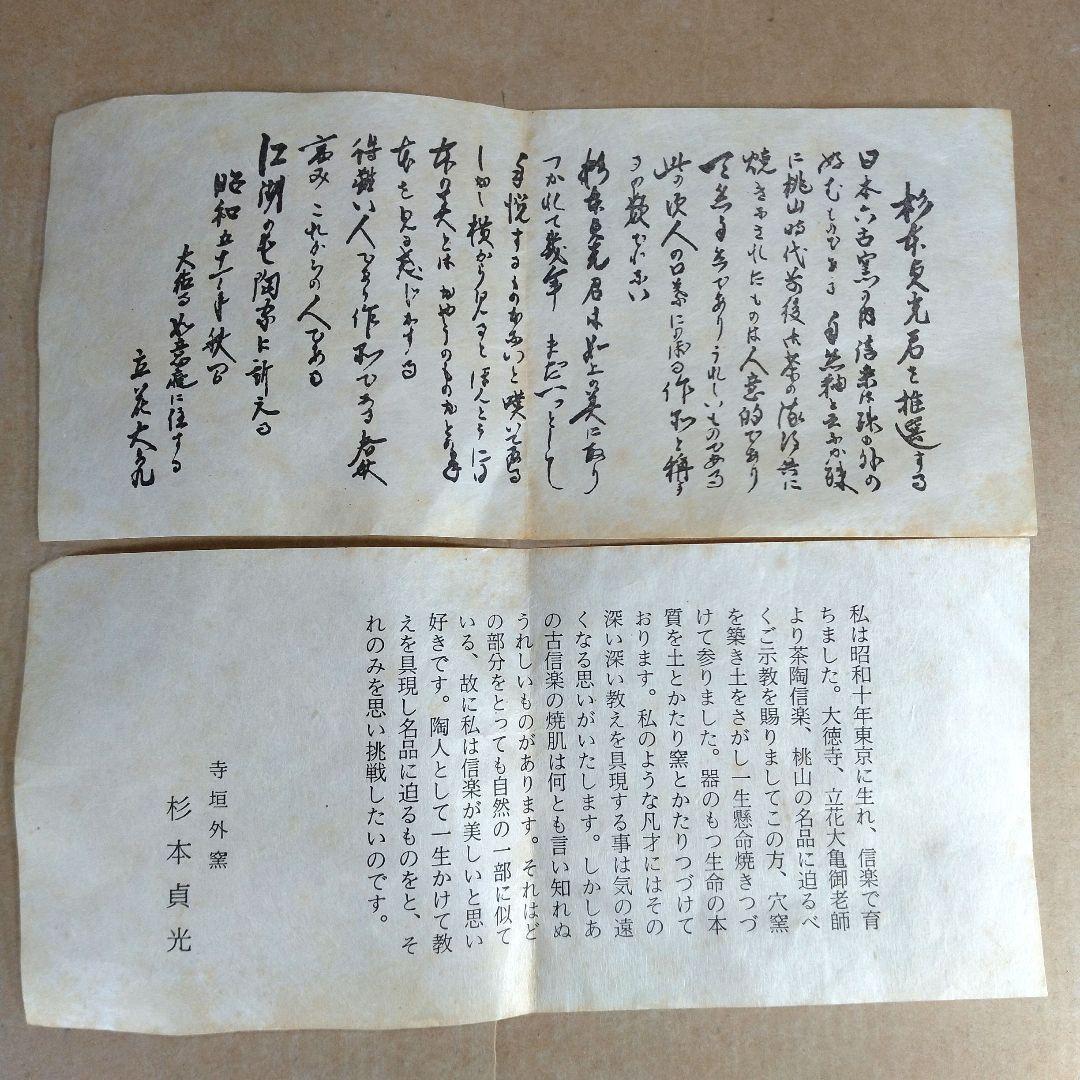 杉本貞光君を推選する
日本六古窯の内信楽は殊の外の
に桃山時代前後は茶の流行と共に
焼きおされたものは人意的であり
此の次人の口 作 と称す
るの
杉本貞光君は如上の美になり
つかれて幾年 まだ一つとして
自悦するものがないと嘆いてゐる
しかし横から見るとほんとうに日
本の美とはかやうのものかと
を見る感じがする
得難い人である作 である
高み これからの人である
江湖の 陶 に訴える
昭和五十一年秋
大徳寺 如意庵に住する
立花大亀
私は昭和十年東京に生れ、信楽で育
ちました。大徳寺、立花大亀御老師
より茶陶信楽、桃山の名品に迫るべ
くご示教を賜りましてこの方、穴窯
を築き土をさがし一生懸命焼きつづ
けて参りました。器のもつ生命の本
質を土とかたり窯とかたりつづけて
おります。私のような凡才にはその
深い深い教えを具現する事は気の遠
くなる思いがいたします。しかしあ
の古信楽の焼肌は何とも言い知れぬ
うれしいものがあります。それはど
の部分をとっても自然の一部に似て
いる、故に私は信楽が美しいと思い
好きです。陶人として一生かけて教
えを具現し名品に迫るものをと、そ
れのみを思い挑戦したいのです。
寺垣外窯
杉本貞光